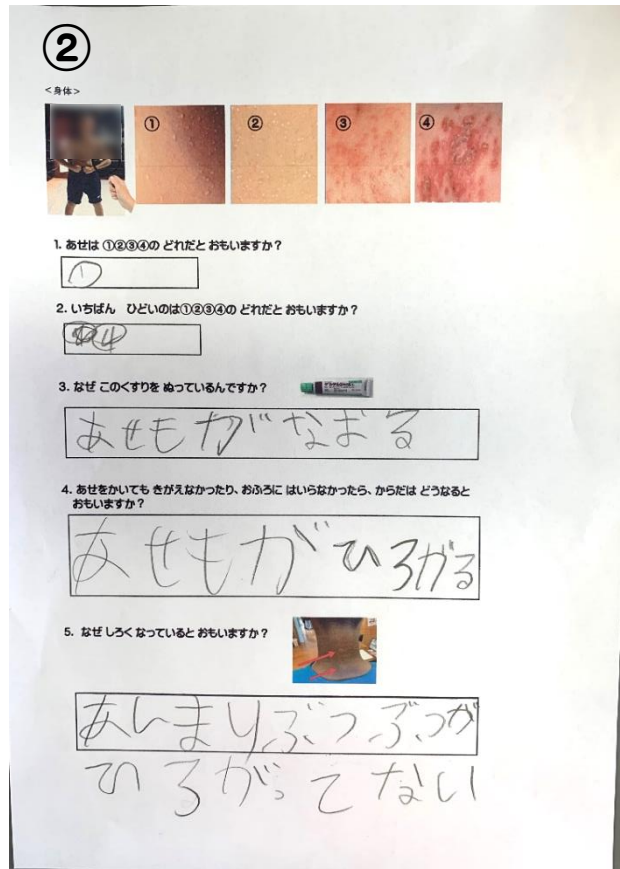 ②
<身体>
① ② ③ ④
1. あせは ①②③④の どれだと おもいますか？
①
2. いちばん　ひどいのは①②③④の どれだと おもいますか？
④
3. なぜ このくすりを ぬっているんですか？
あせもがなおる
4. あせをかいても きがえなかったり、おふろに はいらなかったら、からだは どうなると
おもいますか？
あせもがひろがる
5. なぜ しろく なっていると おもいますか？
あんまりぶつぶつが
ひろがってない